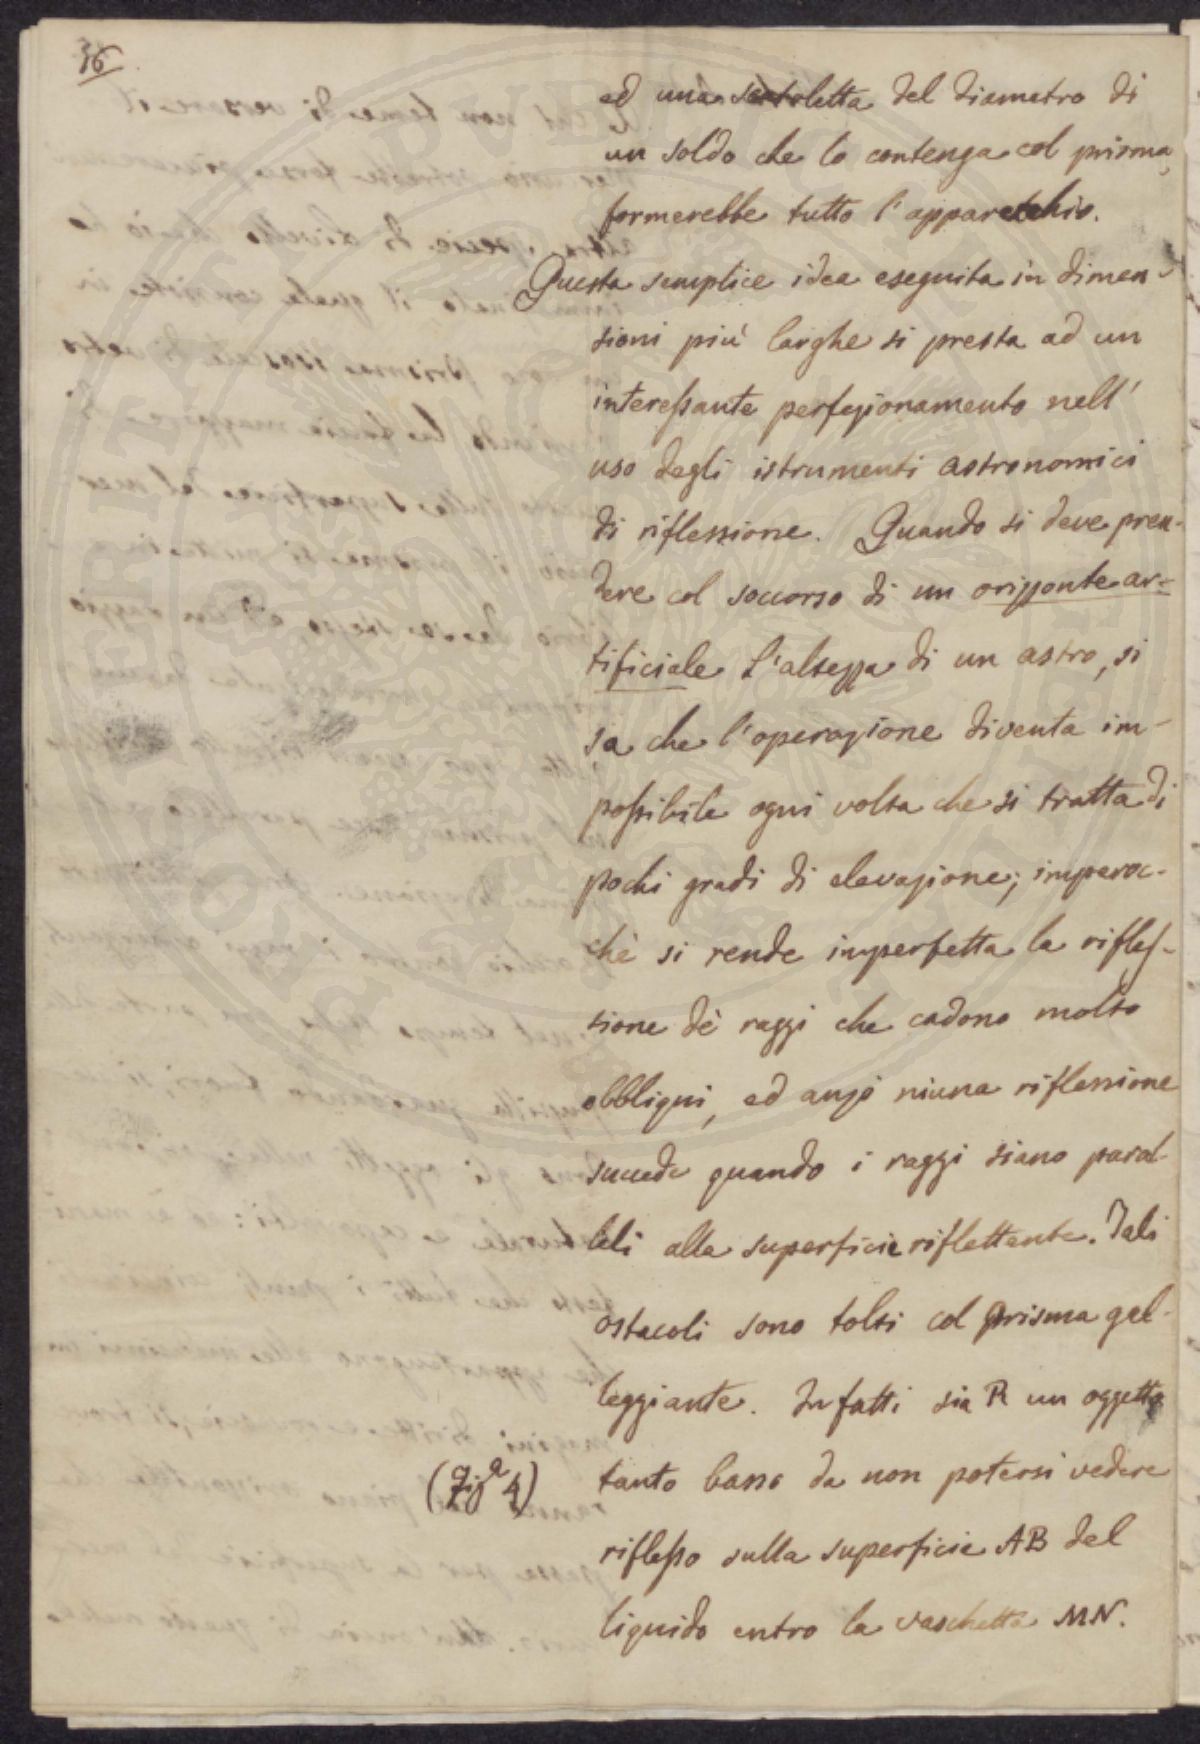 36
ed una scatoletta del diametro di
un soldo che lo contenga col prisma,
formerebbe tutto l'apparecchio.
Questa semplice idea eseguita in dimen-
sioni più larghe si presta ad un
interessante perfezionamento nell'
uso degli istrumenti astronomici
di riflessione. Quando si deve pren-
dere col soccorso di un orizzonte ar=
tificiale l'altezza di un astro, si
sa che l'operazione diventa im-
possibile ogni volta che si tratta di
pochi gradi di elevazione; imperoc-
chè si rende imperfetta la rifles-
sione dè raggi che cadono molto
obbliqui, ed anzi niuna riflessione
succede quando i raggi siano paral-
leli alla superficie riflettente. Tali
ostacoli sono tolti col prisma gal-
leggiante. Infatti sia R un oggetto
(Fig.ª 4) tanto basso da non potersi vedere
riflesso sulla superficie AB del
liquido entro la vaschetta MN.